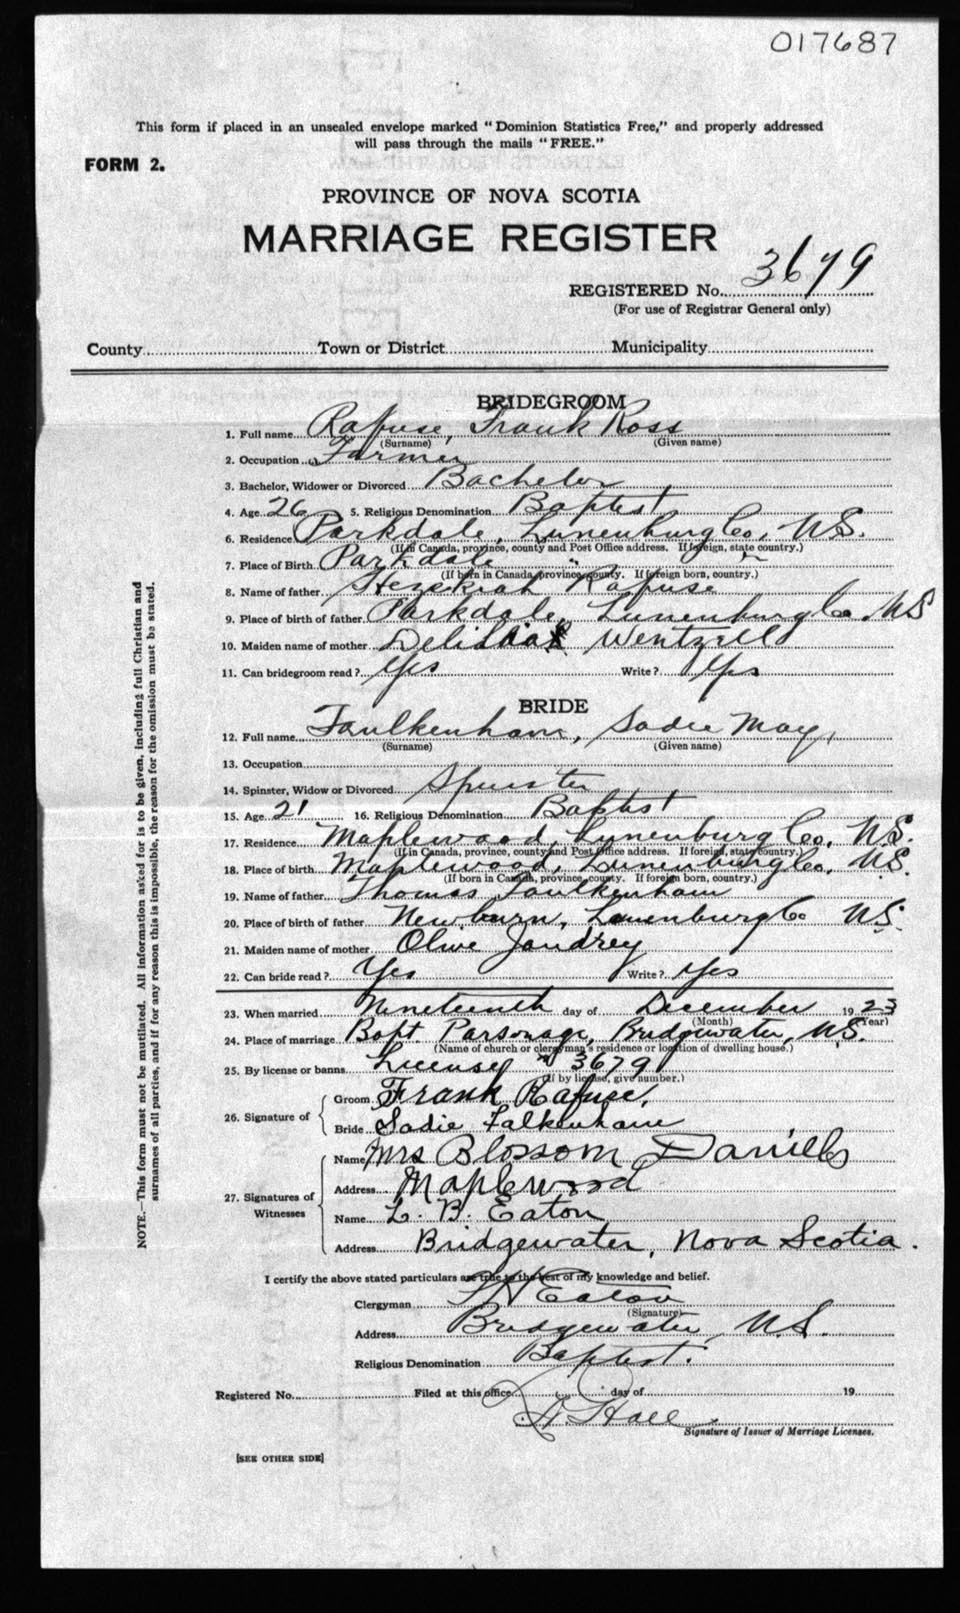 017687
This form if placed in an unsealed envelope marked "Dominion Statistics Free," and properly addressed
will pass through the mails "FREE."
FORM 2.
PROVINCE OF NOVA SCOTIA
MARRIAGE REGISTER
REGISTERED No. 3679
(For use of Registrar General only)
County Town or District Municipality
BRIDEGROOM
1. Full name Rafuse, Frank Ross
(Surname) (Given name)
2. Occupation Farmer
3. Bachelor, Widower or Divorced Bachelor
4. Age 26 5. Religious Denomination Baptist
6. Residence Parkdale, Lunenburg Co, N.S.
(If in Canada, province, county and Post Office address. If foreign, state country.)
7. Place of Birth Parkdale " "
(If born in Canada, province, county. If foreign born, country.)
8. Name of father Hezekiah Rafuse
9. Place of birth of father Parkdale, Lunenburg Co. N.S
10. Maiden name of mother Wentzell
11. Can bridegroom read? Yes Write? Yes
BRIDE
12. Full name Faulkenham, Sadie May,
(Surname) (Given name)
13. Occupation
14. Spinster, Widow or Divorced Spinster
15. Age 21 16. Religious Denomination Baptist
17. Residence Maplewood, Lunenburg Co, N.S.
(If in Canada, province, county and Post Office address. If foreign, state country.)
18. Place of birth Maplewood, Lunenburg Co, N.S.
(If born in Canada, province, county. If foreign born, country.)
19. Name of father Thomas Faulkenham
20. Place of birth of father Newburn, Lunenburg Co N.S.
21. Maiden name of mother Olive Jaudrey
22. Can bride read? Yes Write? Yes
23. When married Nineteenth day of December 1923
(Month) (Year)
24. Place of marriage Bapt Parsonage, Bridgewater, N.S.
(Name of church or clergyman's residence or location of dwelling house.)
25. By license or banns License # 3679
(If by license, give number.)
26. Signature of
Groom Frank Rafuse,
Bride Sadie Falkenham
27. Signatures of Witnesses
Name Mrs Blossom Daniels
Address Maplewood
Name L. B. Eaton
Address Bridgewater, Nova Scotia.
I certify the above stated particulars are true to the best of my knowledge and belief.
Clergyman Eaton
(Signature)
Address Bridgewater, N.S.
Religious Denomination Baptist.
Registered No. Filed at this office day of 19
Hall
Signature of Issuer of Marriage Licenses.
[SEE OTHER SIDE]
NOTE.—This form must not be mutilated. All information asked for is to be given, including full Christian and
surnames of all parties, and if for any reason this is impossible, the reason for the omission must be stated.